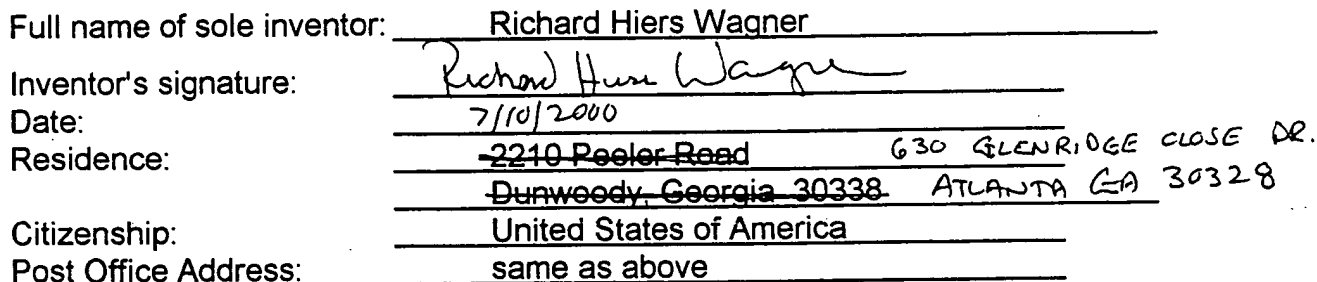 Full name of sole inventor: Richard Hiers Wagner
Inventor's signature: Richard Hiers Wagner
Date: 7/10/2000
Residence: 2210 Peeler Road 630 GLENRIDGE CLOSE DR.
Dunwoody, Georgia 30338 ATLANTA GA 30328
Citizenship: United States of America
Post Office Address: same as above